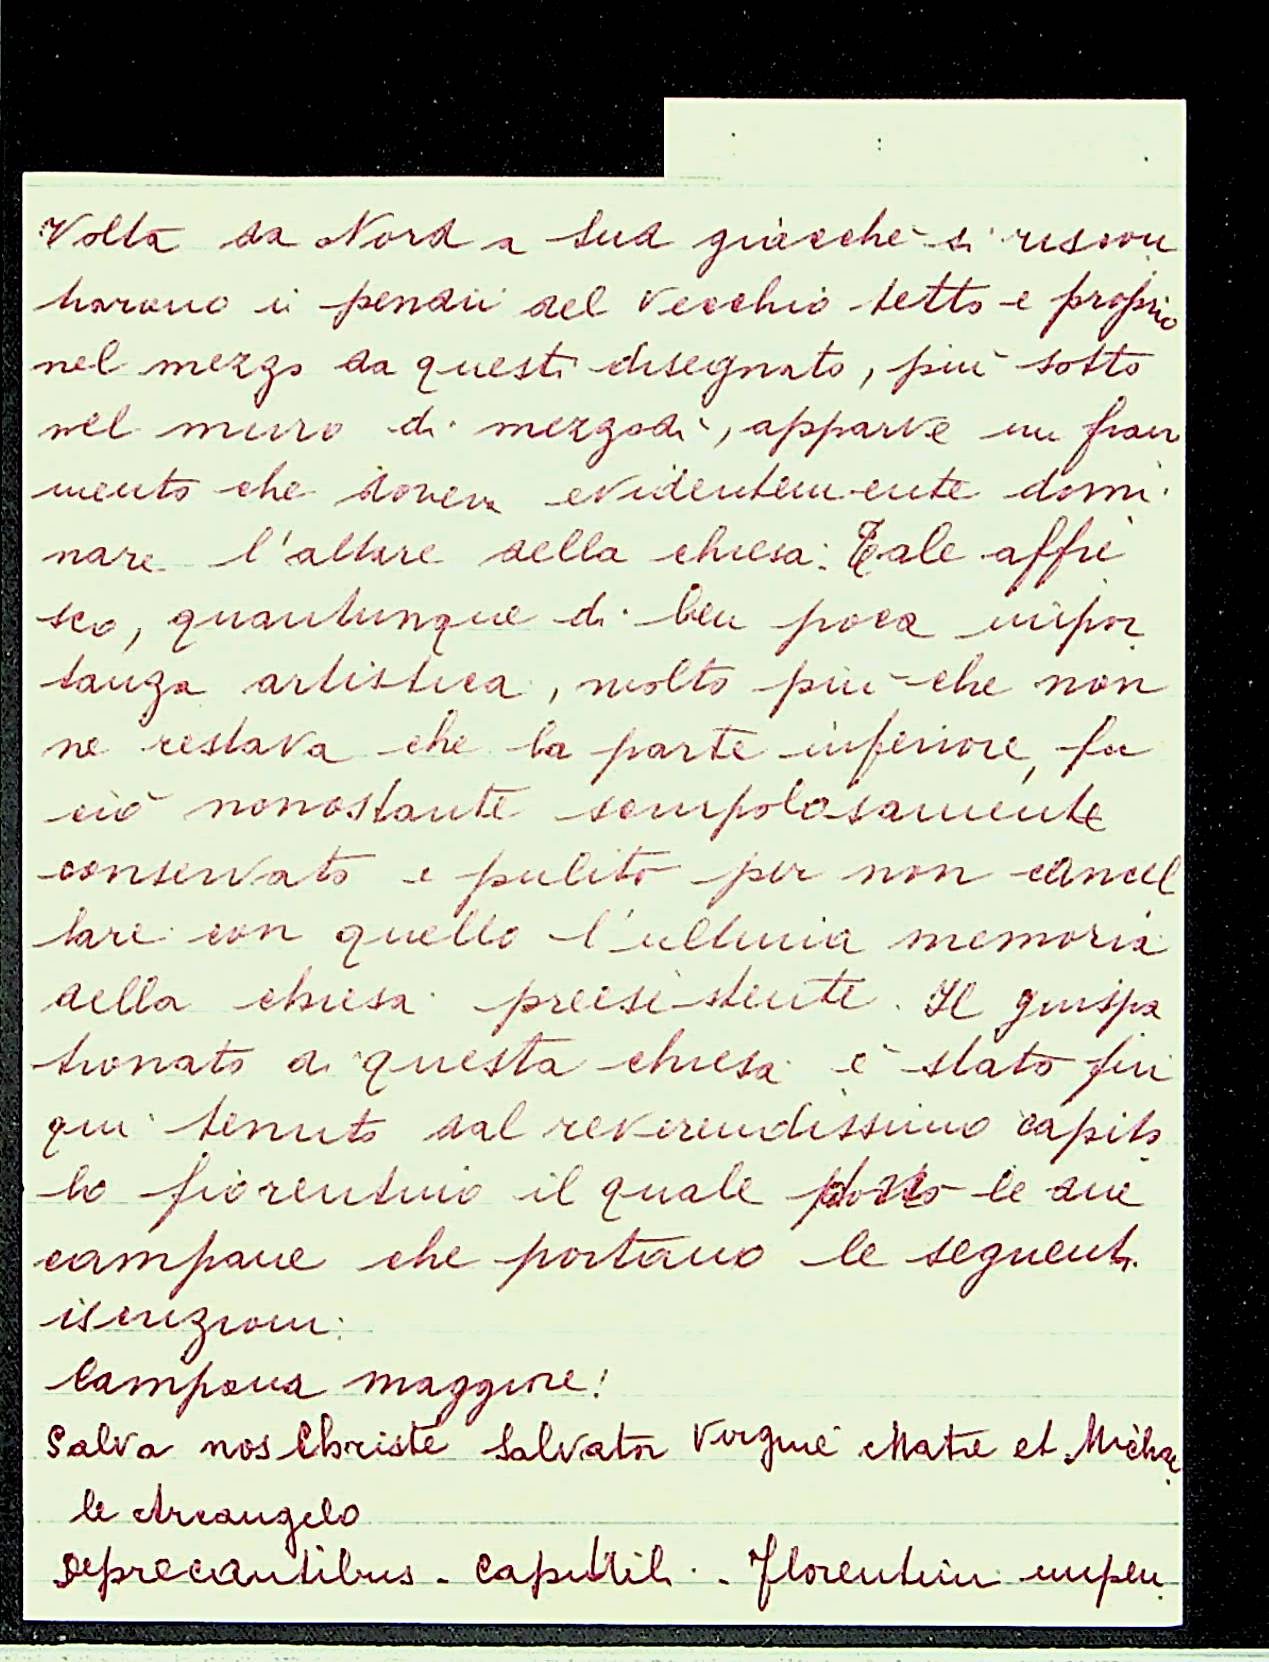 Volta da Nord a Sud giacchè si riscon
trarono i pendii del vecchio tetto e proprio
nel mezzo da questi disegnato, più sotto
nel muro di mezzodì, apparve un fram
mento che doveva evidentemente domi
nare l'altare della chiesa: Tale affre
sco, quantunque di ben poca impor
tanza artistica, molto più che non
ne restava che la parte inferiore, fu
ciò nonostante scrupolosamente
conservato e pulito per non cancel
lare con quello l'ultima memoria
della chiesa preesistente. Il giuspa
tronato di questa chiesa è stato fin
qui tenuto dal reverendissimo capito
lo fiorentino il quale le due
campane che portano le seguenti
iscrizioni:
Campana maggiore:
Salva nos Christe Salvator Virgine Matre et Michae
le Arcangelo
Deprecantibus - Capituli - Florentini impen